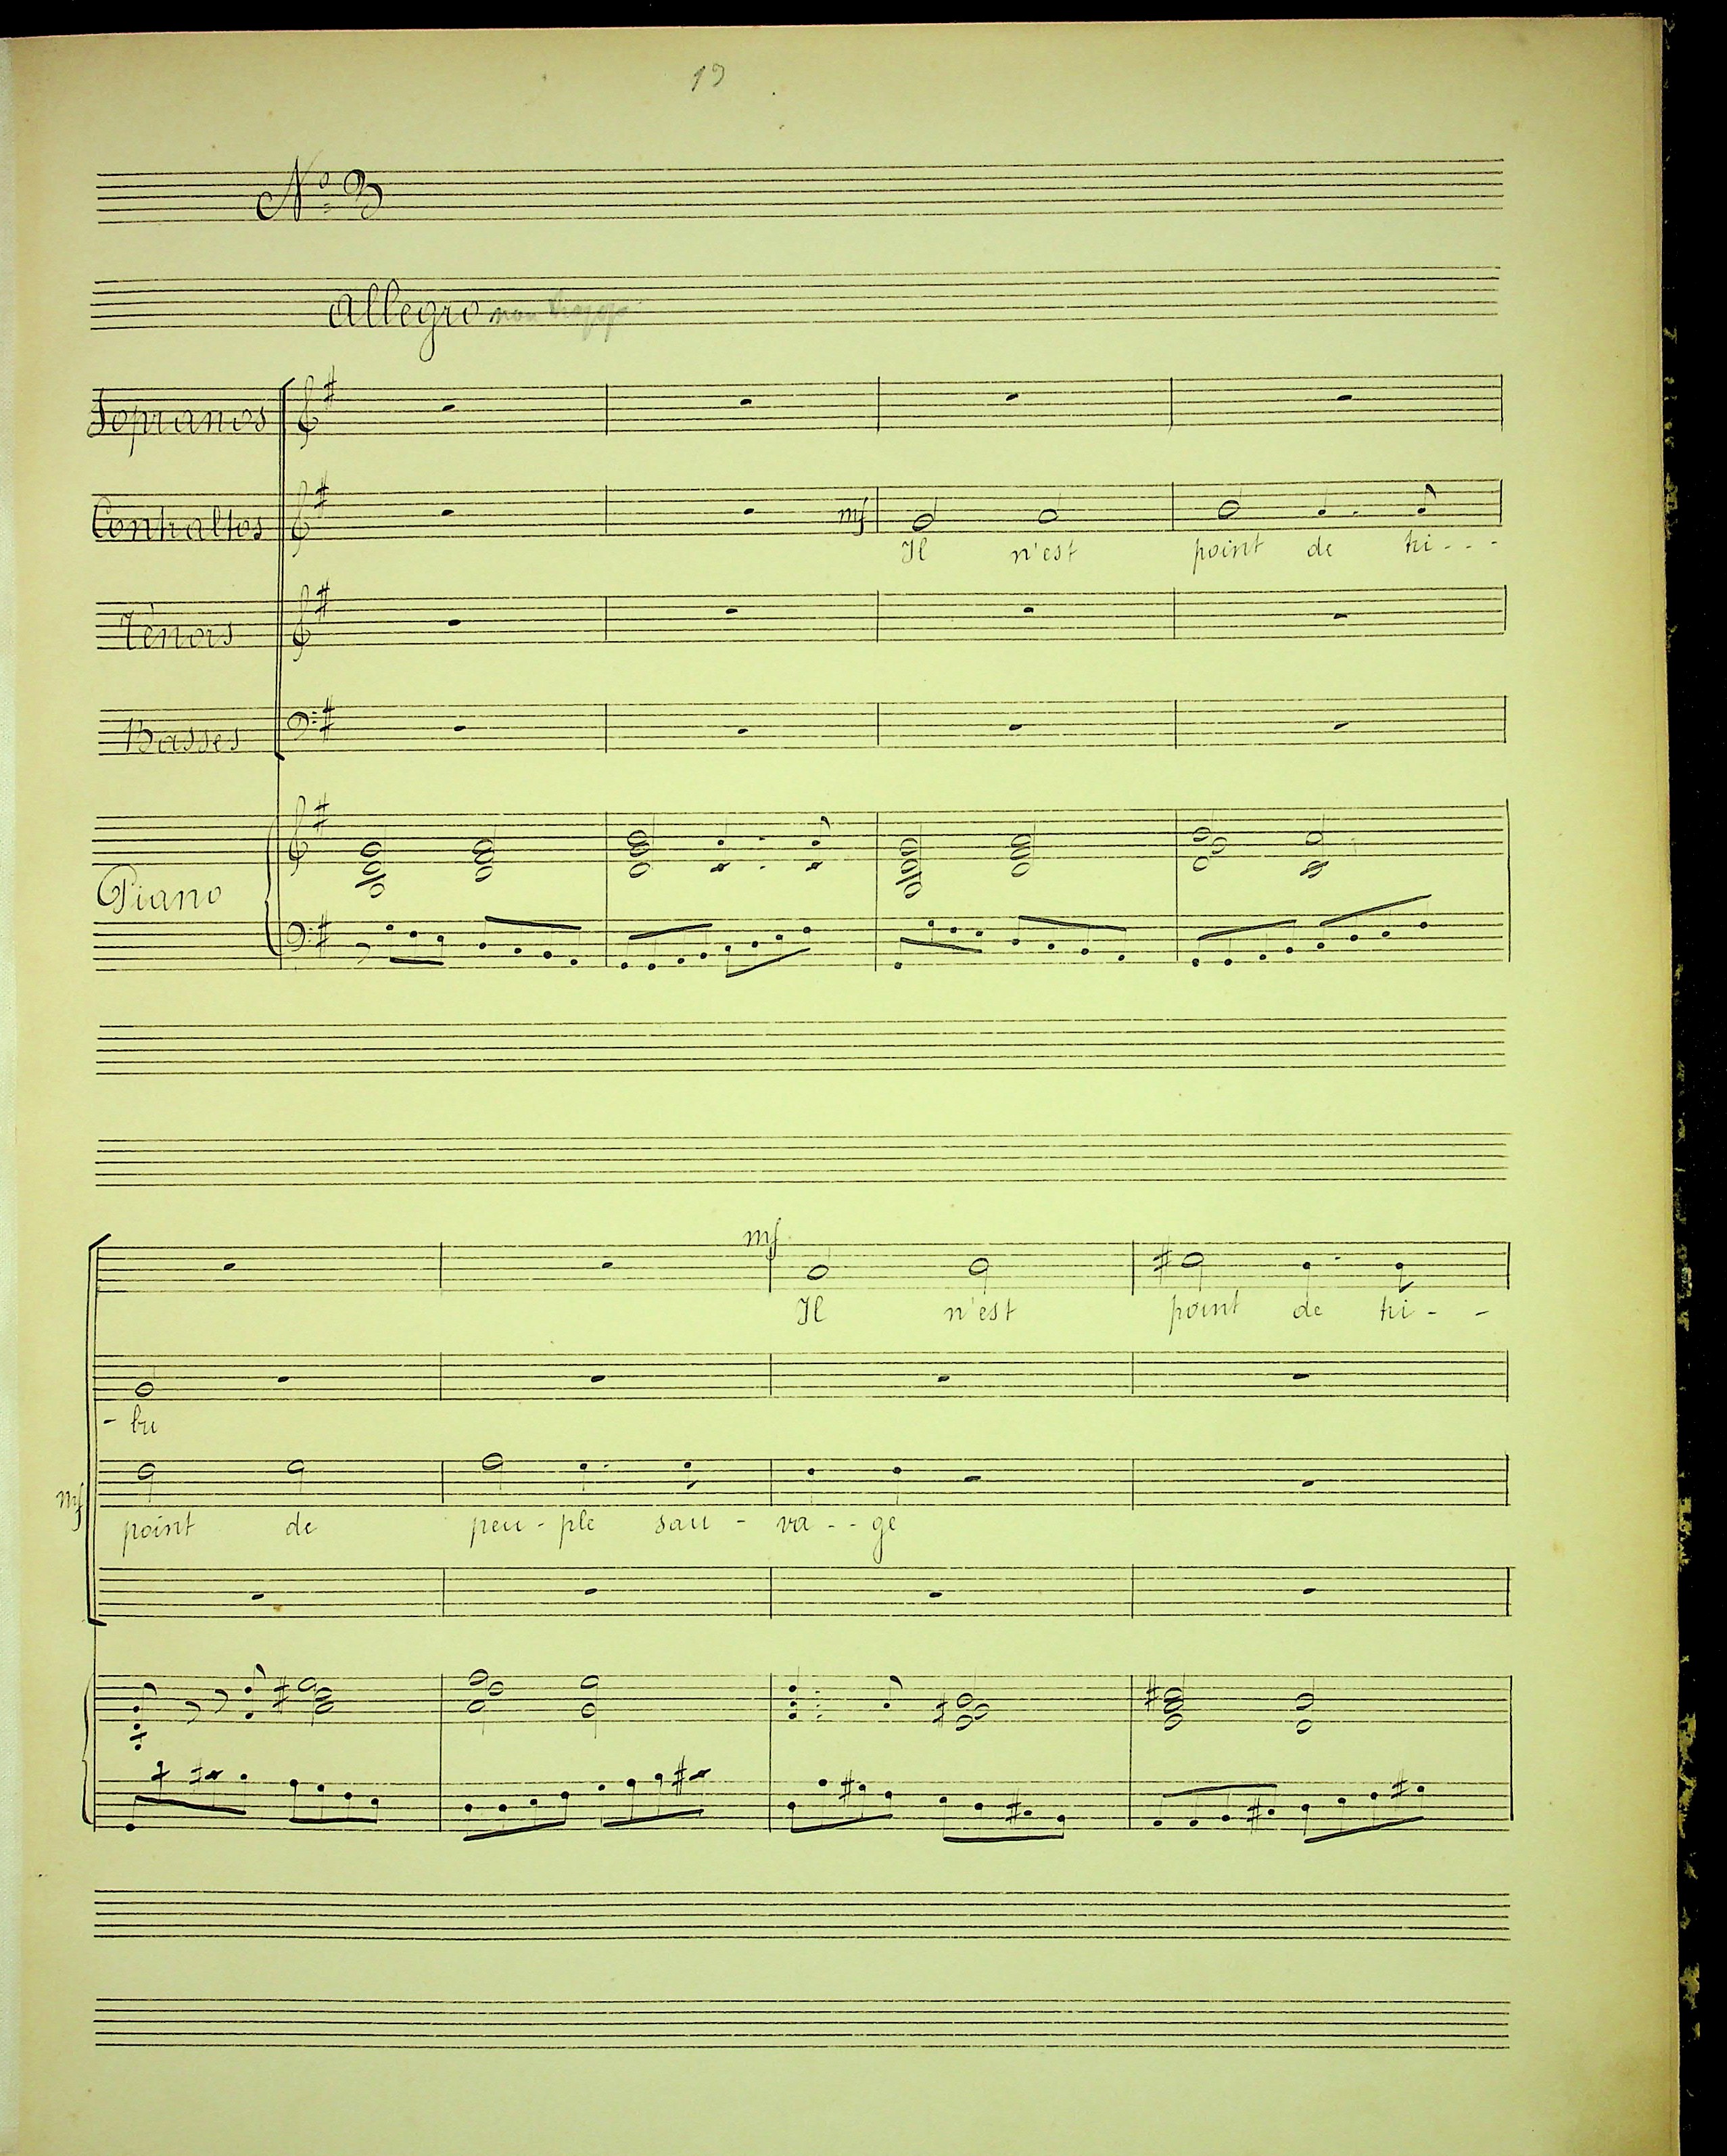 19
Nº 3
Allegro non troppo
Sopranos
Contraltos
mf
Il n'est point de tri - - -
Ténors
Basses
Piano
mf
Il n'est point de tri - -
- bu
mf
point de peu - ple sau - va - - ge